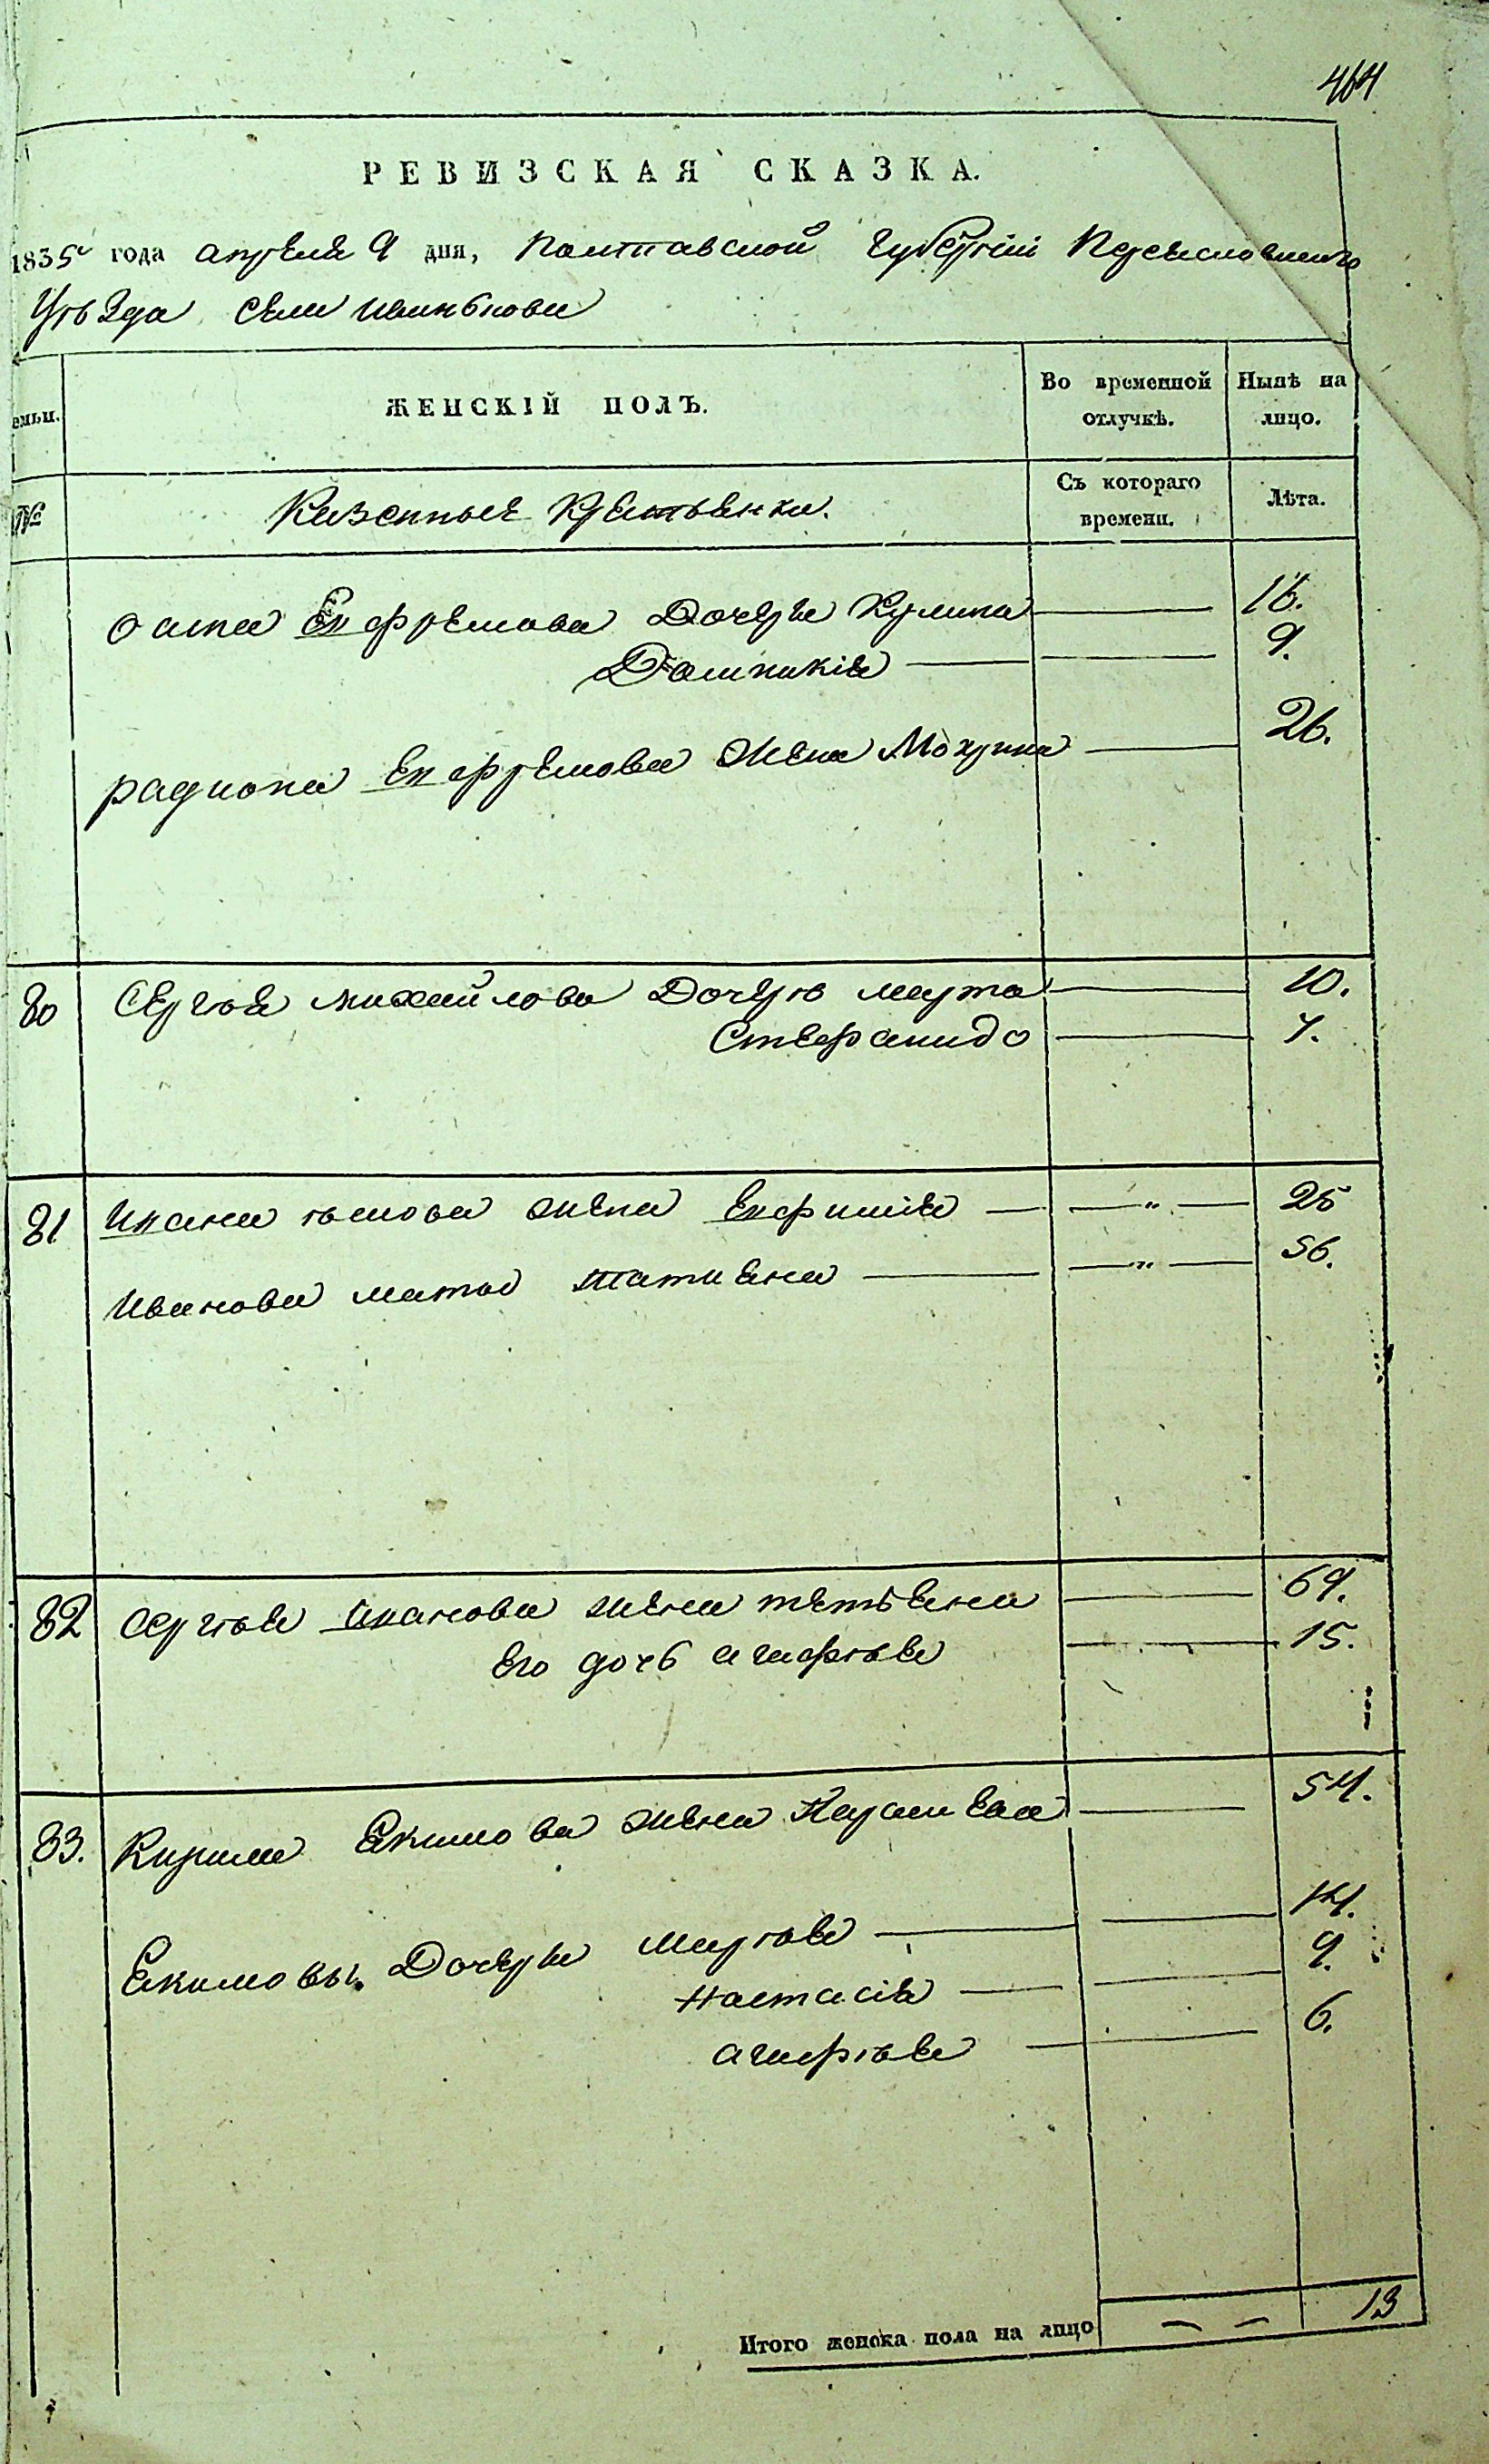 464
РЕВИЗСКАЯ СКАЗКА.
1835 года апреля 9 дня, Полтавской Губерніи Переясловского
Уѣзда села
емьи. ЖЕНСКІЙ ПОЛЪ. Во временной отлучкѣ. Нынѣ на лицо.
№ Казенные Крестьянки. Съ котораго времени. Лѣта.
Ефремова Дочери Кулина 16.
Домникія 9.
радиона Ефремова Жена Мокрина 26.
80 Сергѣя михайлова Дочери марта 10.
Стефанида 7.
81 жена Ефимія — " — 25
Иванова мать татиана — " — 56.
82 Сергѣя жена татьяна 69.
Его дочь агафѣя 15.
83. Кирила Екимова жена 54.
Екимовы Дочери марѣя 14.
настасія 9.
агафѣя 6.
Итого женска пола на лицо 13